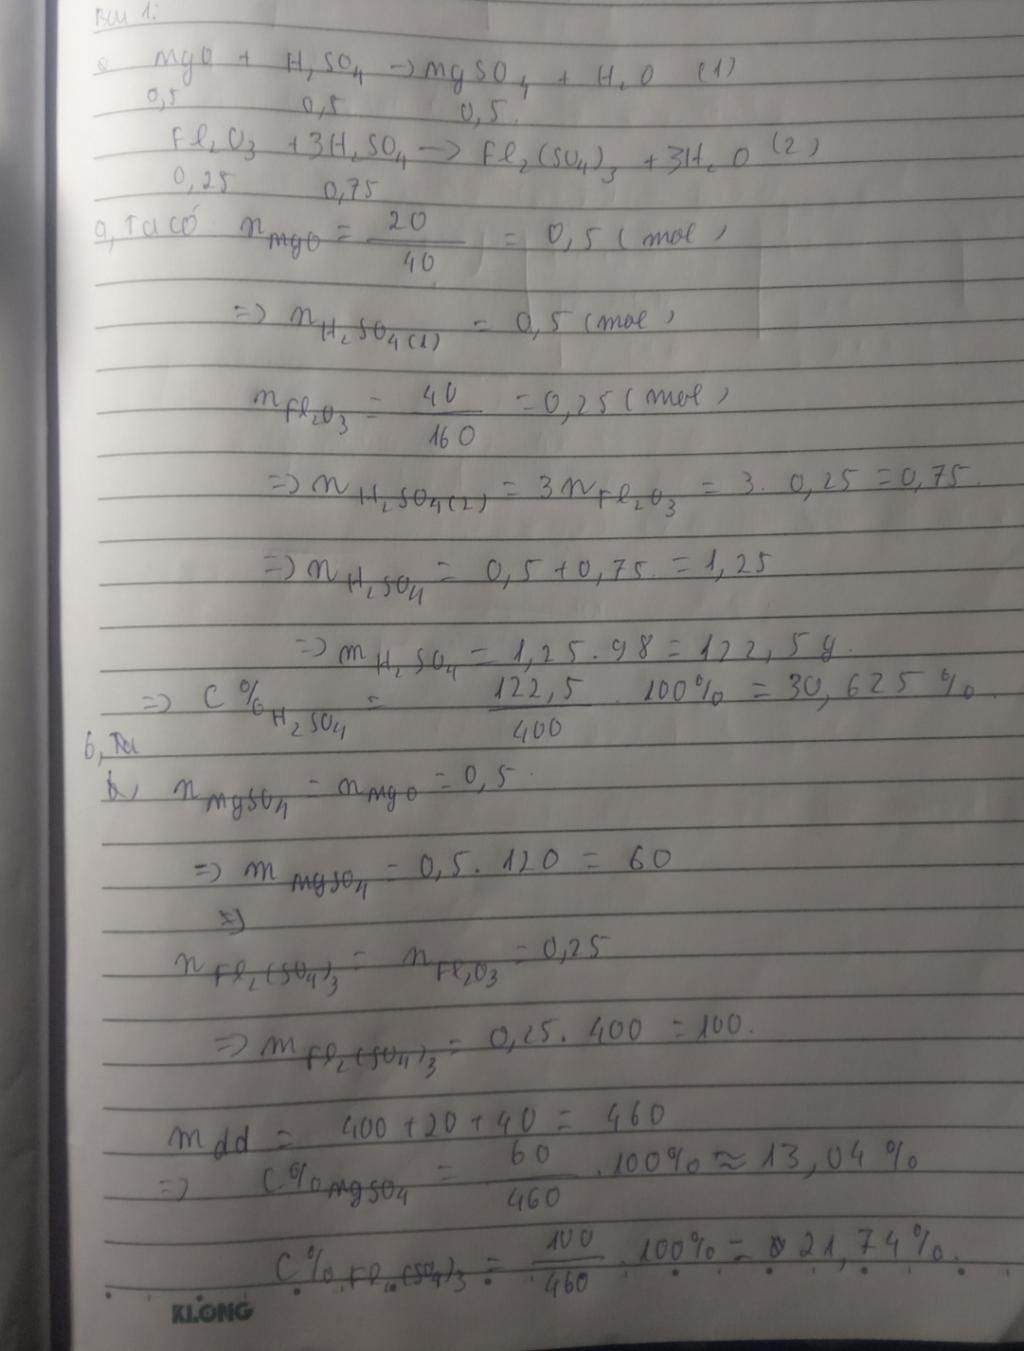 Bài 1:
MgO + H₂SO₄ → MgSO₄ + H₂O (1)
0,5 0,5 0,5
Fe₂O₃ + 3H₂SO₄ → Fe₂(SO₄)₃ + 3H₂O (2)
0,25 0,75
a, Ta có n MgO = 20/40 = 0,5 (mol)
=> n H₂SO₄(1) = 0,5 (mol)
n Fe₂O₃ = 40/160 = 0,25 (mol)
=> n H₂SO₄(2) = 3n Fe₂O₃ = 3. 0,25 = 0,75.
=> n H₂SO₄ = 0,5 + 0,75. = 1,25
=> m H₂SO₄ = 1,25 . 98 = 122,5 g.
=> C% H₂SO₄ = 122,5/400 . 100% = 30,625 %.
b, Ta
b, n MgSO₄ = n MgO = 0,5.
=> m MgSO₄ = 0,5. 120 = 60
=>
n Fe₂(SO₄)₃ = n Fe₂O₃ = 0,25
=> m Fe₂(SO₄)₃ = 0,25. 400 = 100.
m dd = 400 + 20 + 40 = 460
=> C% MgSO₄ = 60/460 . 100% ≈ 13,04 %
C% Fe₂(SO₄)₃ = 100/460 . 100% = 21,74 %.
KLONG